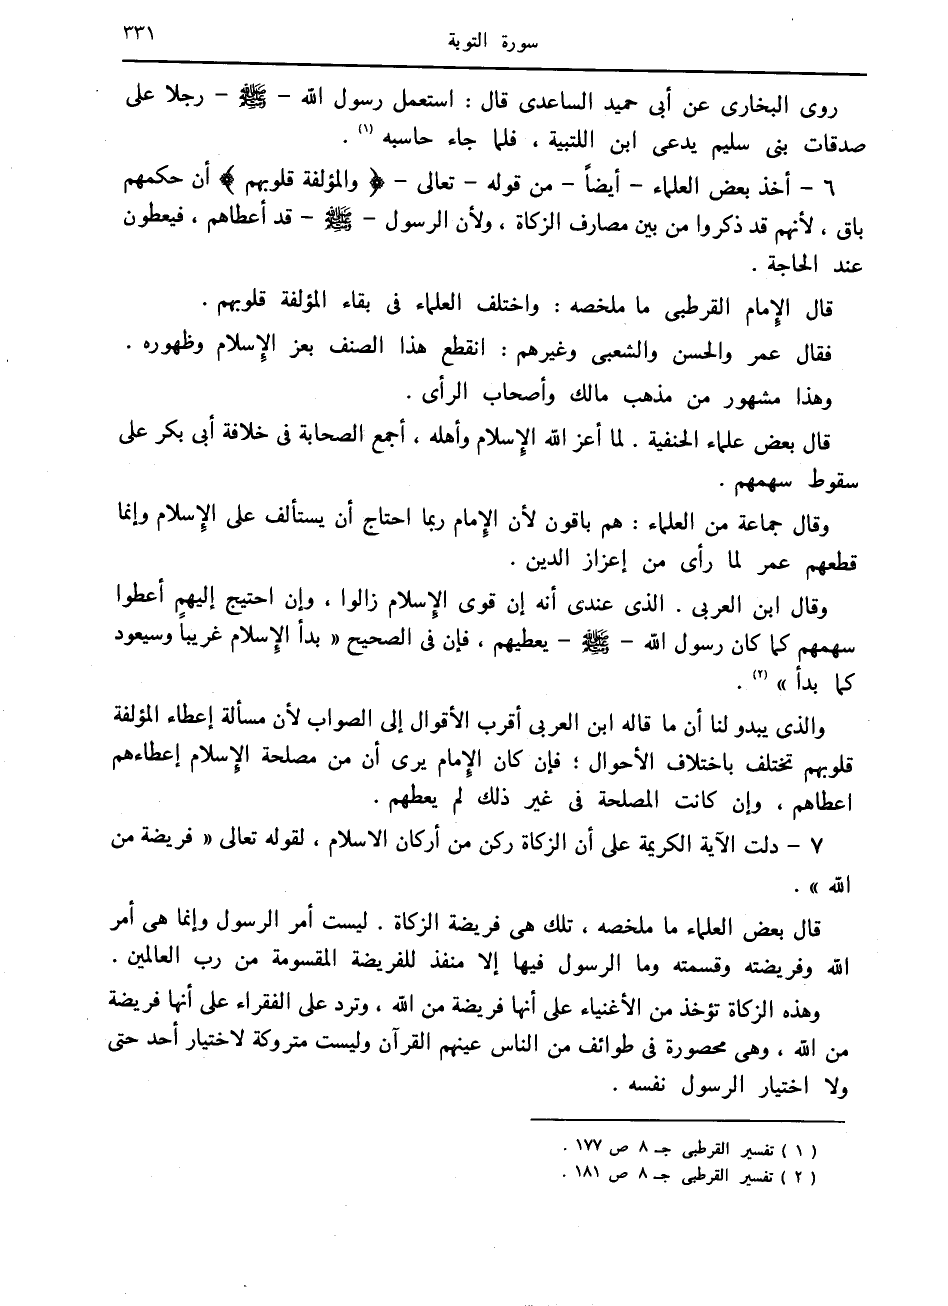 سورة التوبة
٣٣١
روى البخارى عن أبى حميد الساعدى قال : استعمل رسول الله – ﷺ – رجلا على
صدقات بنى سليم يدعى ابن اللتبية ، فلما جاء حاسبه (١) .
٦ – أخذ بعض العلماء – أيضاً – من قوله – تعالى – ﴿ والمؤلفة قلوبهم ﴾ أن حكمهم
باق ، لأنهم قد ذكروا من بين مصارف الزكاة ، ولأن الرسول – ﷺ – قد أعطاهم ، فيعطون
عند الحاجة .
قال الإمام القرطبى ما ملخصه : واختلف العلماء فى بقاء المؤلفة قلوبهم .
فقال عمر والحسن والشعبى وغيرهم : انقطع هذا الصنف بعز الإسلام وظهوره .
وهذا مشهور من مذهب مالك وأصحاب الرأى .
قال بعض علماء الحنفية . لما أعز الله الإسلام وأهله ، أجمع الصحابة فى خلافة أبى بكر على
سقوط سهمهم .
وقال جماعة من العلماء : هم باقون لأن الإمام ربما احتاج أن يستألف على الإسلام وإنما
قطعهم عمر لما رأى من إعزاز الدين .
وقال ابن العربى . الذى عندى أنه إن قوى الإسلام زالوا ، وإن احتيج إليهم أعطوا
سهمهم كما كان رسول الله – ﷺ – يعطيهم ، فإن فى الصحيح « بدأ الإسلام غريباً وسيعود
كما بدأ » (٢) .
والذى يبدو لنا أن ما قاله ابن العربى أقرب الأقوال إلى الصواب لأن مسألة إعطاء المؤلفة
قلوبهم تختلف باختلاف الأحوال ؛ فإن كان الإمام يرى أن من مصلحة الإسلام إعطاءهم
اعطاهم ، وإن كانت المصلحة فى غير ذلك لم يعطهم .
٧ – دلت الآية الكريمة على أن الزكاة ركن من أركان الاسلام ، لقوله تعالى « فريضة من
الله » .
قال بعض العلماء ما ملخصه ، تلك هى فريضة الزكاة . ليست أمر الرسول وإنما هى أمر
الله وفريضته وقسمته وما الرسول فيها إلا منفذ للفريضة المقسومة من رب العالمين .
وهذه الزكاة تؤخذ من الأغنياء على أنها فريضة من الله ، وترد على الفقراء على أنها فريضة
من الله ، وهى محصورة فى طوائف من الناس عينهم القرآن وليست متروكة لاختيار أحد حتى
ولا اختيار الرسول نفسه .
( ١ ) تفسير القرطبى جـ ٨ ص ١٧٧ .
( ٢ ) تفسير القرطبى جـ ٨ ص ١٨١ .